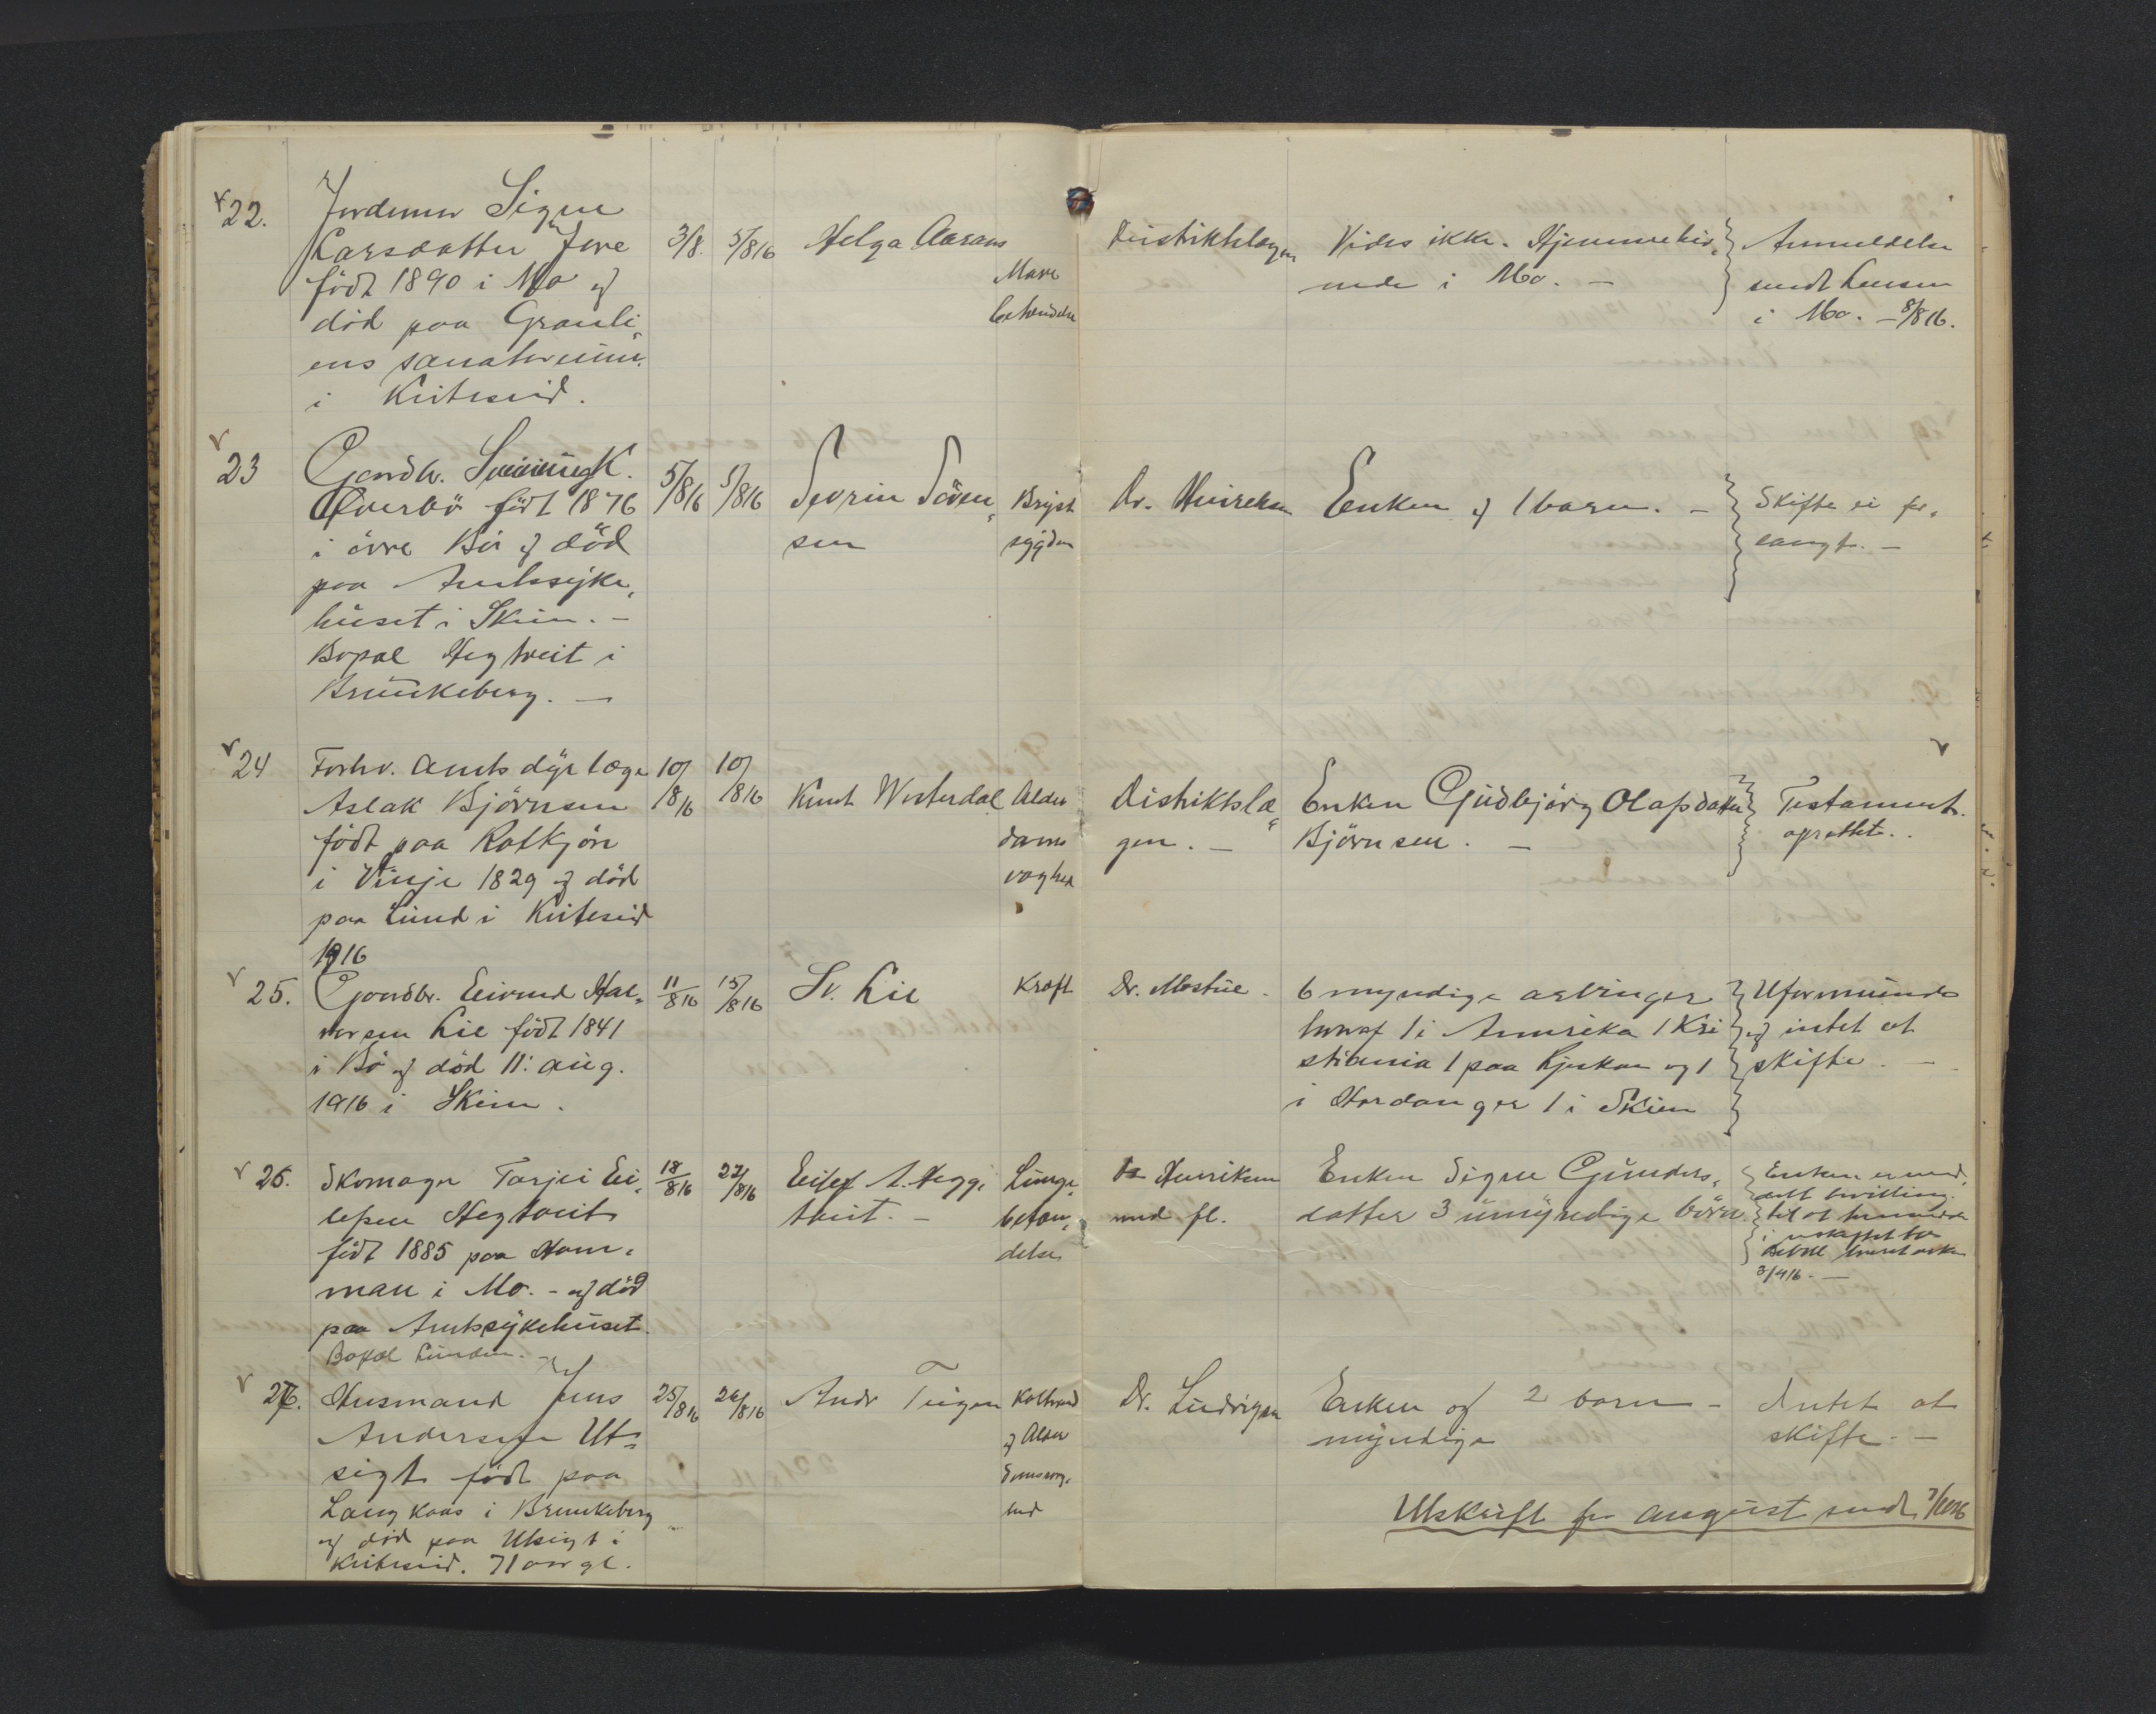 22.
Jordmor Signe
Larsdatter Jore
född 1890 i Mo og
död paa Grauli„
ens sanatorium
i Kviteseid.
3/8. 5/816
Helga Aarans
Mave
betændelse
Distriktslægen
Vides ikke. Hjemmehö„
rende i Mo. –
Anmeldelse
sendt Lensm
i Mo. – 8/816.
23
Gaardbr. K.
Överbö född 1876
i övre Bö og död
paa Amtssyke„
huset i Skien. –
Bopæl Hegtveit i
Brunkeberg. –
5/816 5/816
Sevrin Sören„
sen
Bryst
sygdom
Dr. Henriksen
Enken og 1 barn. –
Skifte ei for„
langt. –
24
Forhv. Amtsdyrlæge
Aslak Björnsen
födt paa Rotkjön
i Vinje 1829 og död
paa Lund i Kviteseid
1916
10/816 10/816
Knut Westerdal
Alder
doms
svaghed
Distriktslæ„
gen. –
Enken Gudbjörg Olafsdatter
Björnsen. –
Testament
oprettet.
25.
Gaardbr. Eivind Hal„
vorsen Lie födt 1841
i Bö og död 11: aug.
1916 i Skien.
11/816 15/816
Sv. Lie
Kræft
Dr. Mostue.
6 myndige arvinger
hvoraf 1 i Amerika 1 Kri
stiania 1 paa Rjukan og 1
i Hardanger 1 i Skien
Uformuende
og intet at
skifte. –
26.
Skomager Tarjei Ei„
lefsen Hegtveit
födt 1885 paa Hom„
man i Mo. – og död
paa Amtssykehuset.
Bopæl Lunden. –
18/816 22/816
Eilef A. Hegge
tveit. –
Lunge„
betæn„
delse
Dr Henriksen
med fl.
Enken Signe Gunders„
datter 3 umyndige börn.
Enken er med„
delt bevilling
til at hensidde
i uskiftet bo
3/916. –
27.
Husmand Jens
Andersen Ut„
sigt född paa
Langkaas i Brunkeberg
og död paa Utsigt i
Kviteseid. 71 aar gl.
25/816 26/816
Andr Teigen
Koldbrand
og Alder
doms
Dr. Ludvigsen
Enken og 2 barn –
myndige
Intet at
skifte. –
Utskrift for august sendt